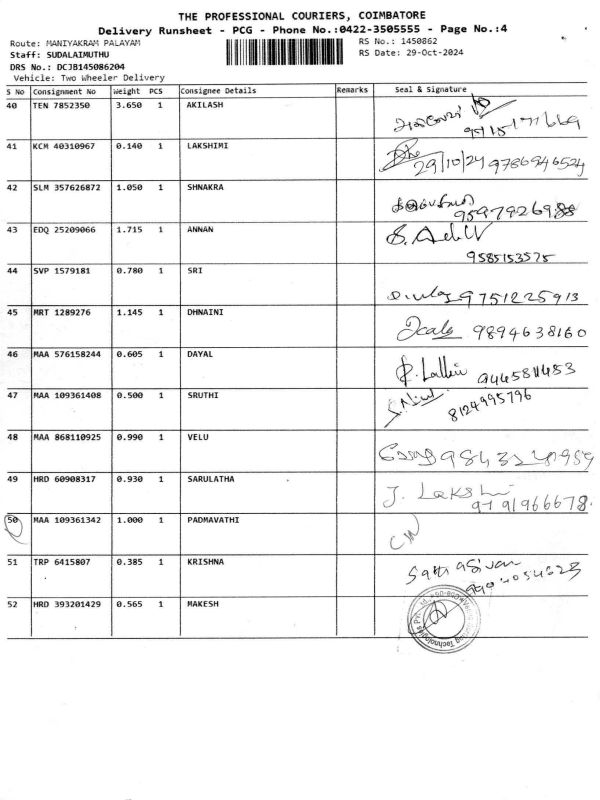 THE PROFESSIONAL COURIERS, COIMBATORE
Delivery Runsheet - PCG - Phone No.:0422-3505555 - Page No.:4
Route: MANIYAKRAM PALAYAM
RS No.: 1450862
Staff: SUDALAIMUTHU
RS Date: 29-Oct-2024
DRS No.: DCJB145086204
Vehicle: Two Wheeler Delivery
S No Consignment No Weight PCS Consignee Details Remarks Seal & Signature
40 TEN 7852350 3.650 1 AKILASH
41 KCM 40310967 0.140 1 LAKSHIMI
29/10/24 9786946524
42 SLM 357626872 1.050 1 SHNAKRA
43 EDQ 25209066 1.715 1 ANNAN
9585153575
44 SVP 1579181 0.780 1 SRI
9751225913
45 MRT 1289276 1.145 1 DHNAINI
9894638160
46 MAA 576158244 0.605 1 DAYAL
47 MAA 109361408 0.500 1 SRUTHI
8124995796
48 MAA 868110925 0.990 1 VELU
49 HRD 60908317 0.930 1 SARULATHA
J. Lakshi
50 MAA 109361342 1.000 1 PADMAVATHI
51 TRP 6415807 0.385 1 KRISHNA
52 HRD 393201429 0.565 1 MAKESH